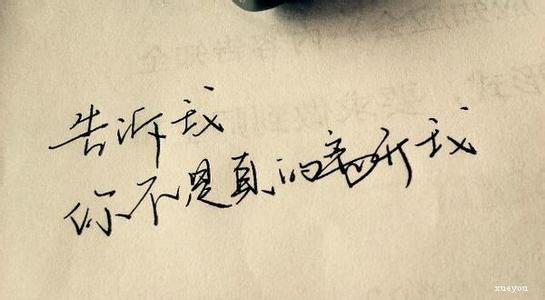 告诉我
你不是真的离开我
xueyou